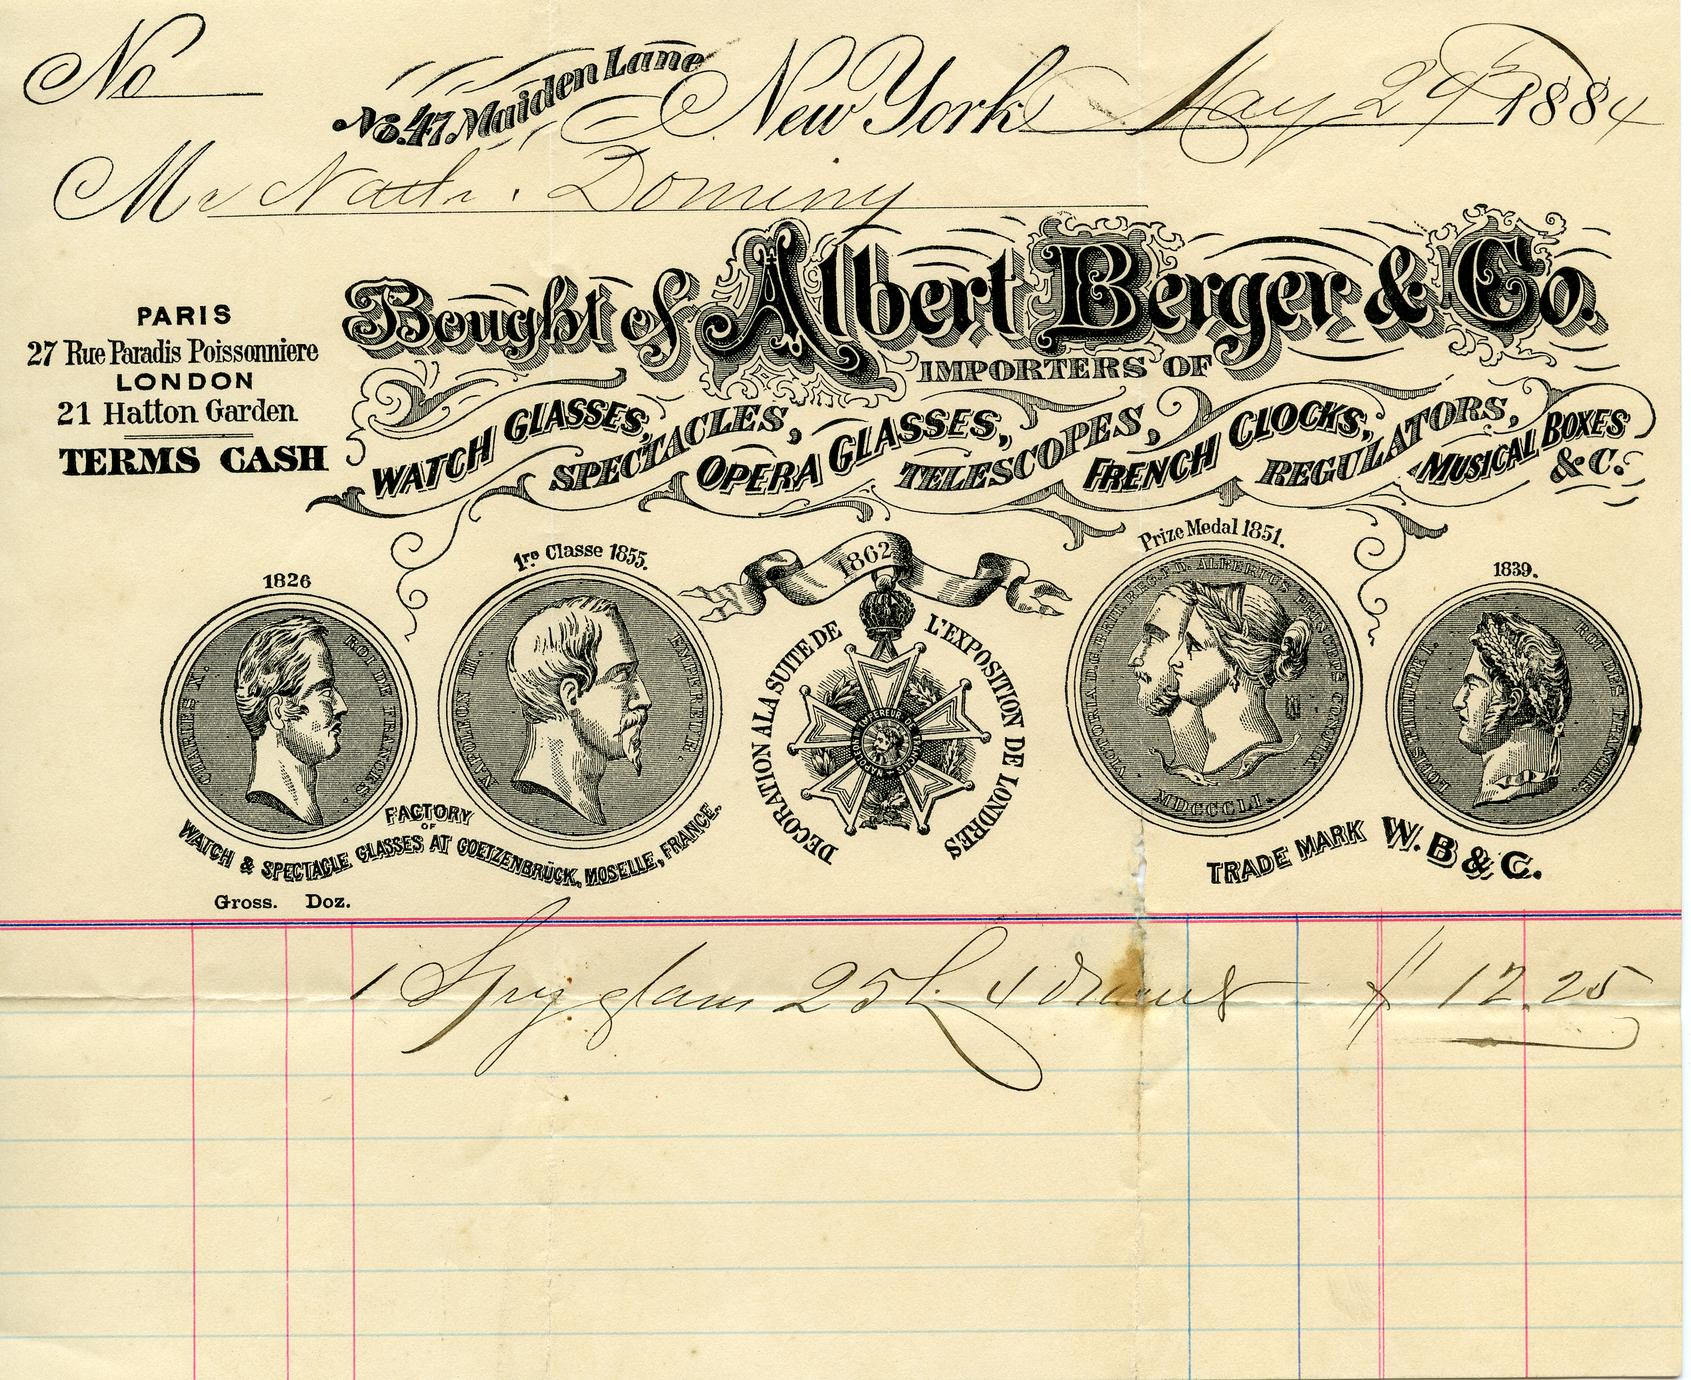 No
No. 47. Maiden Lane New York May 29th 1884
Mr Nathl. Dominy
PARIS
27 Rue Paradis Poissonniere
LONDON
21 Hatton Garden
TERMS CASH
Bought of Albert Berger & Co.
IMPORTERS OF
WATCH GLASSES, SPECTACLES, OPERA GLASSES, TELESCOPES, FRENCH CLOCKS, REGULATORS, MUSICAL BOXES
&C.
1826
CHARLES X. ROI DE FRANCE.
1re Classe 1855.
NAPOLEON III. EMPEREUR.
1862
DECORATION A LA SUITE DE L'EXPOSITION DE LONDRES
Prize Medal 1851.
MDCCCLI.
1839.
LOUIS PHILIPPE I. ROI DES FRANCAIS.
FACTORY
OF
WATCH & SPECTACLE GLASSES AT GOETZENBRÜCK, MOSELLE, FRANCE.
TRADE MARK W. B & C.
Gross. Doz.
1 Spy glass 25 l. 4 draws $ 12.25